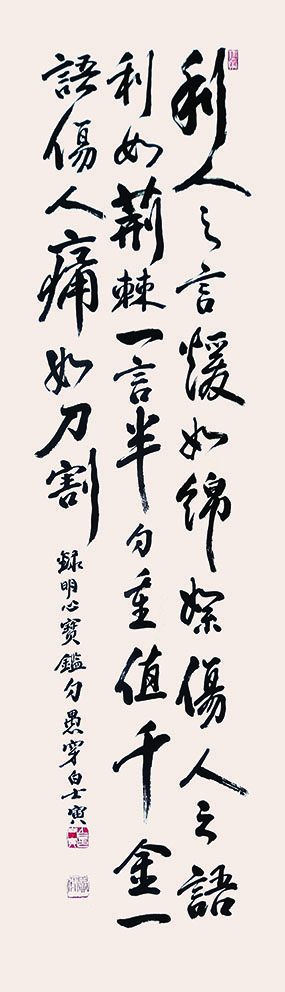 利人之言煖如綿絮傷人之語
利如荊棘一言半句重值千金一
語傷人痛如刀割
錄明心寶鑑句愚穿白士寅